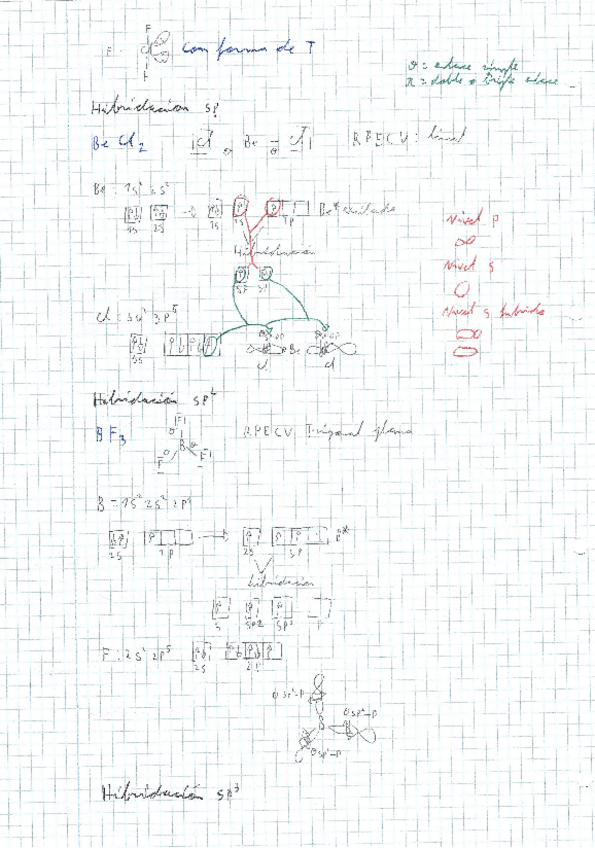 F Cl con forma de T
F
σ = enlace simple
π = doble o triple enlace
Hibridación sp
Be Cl2 |Cl σ Be σ Cl| RPECV: lineal
Be = 1s² 2s²
1s 2s → 1s Be* excitado
Hibridación
Nivel p
Nivel s
Nivel s híbrido
Cl: 3s² 3p⁵
3s
Cl Be Cl
Hibridación sp²
BF3 RPECV Trigonal plana
B
B = 1s² 2s² 2p¹
2s 2p → 2s
hibridación
sp2
F: 2s² 2p⁵
2s 2p
σ sp²-p
σ sp²-p
B
σ sp²-p
Hibridación sp³